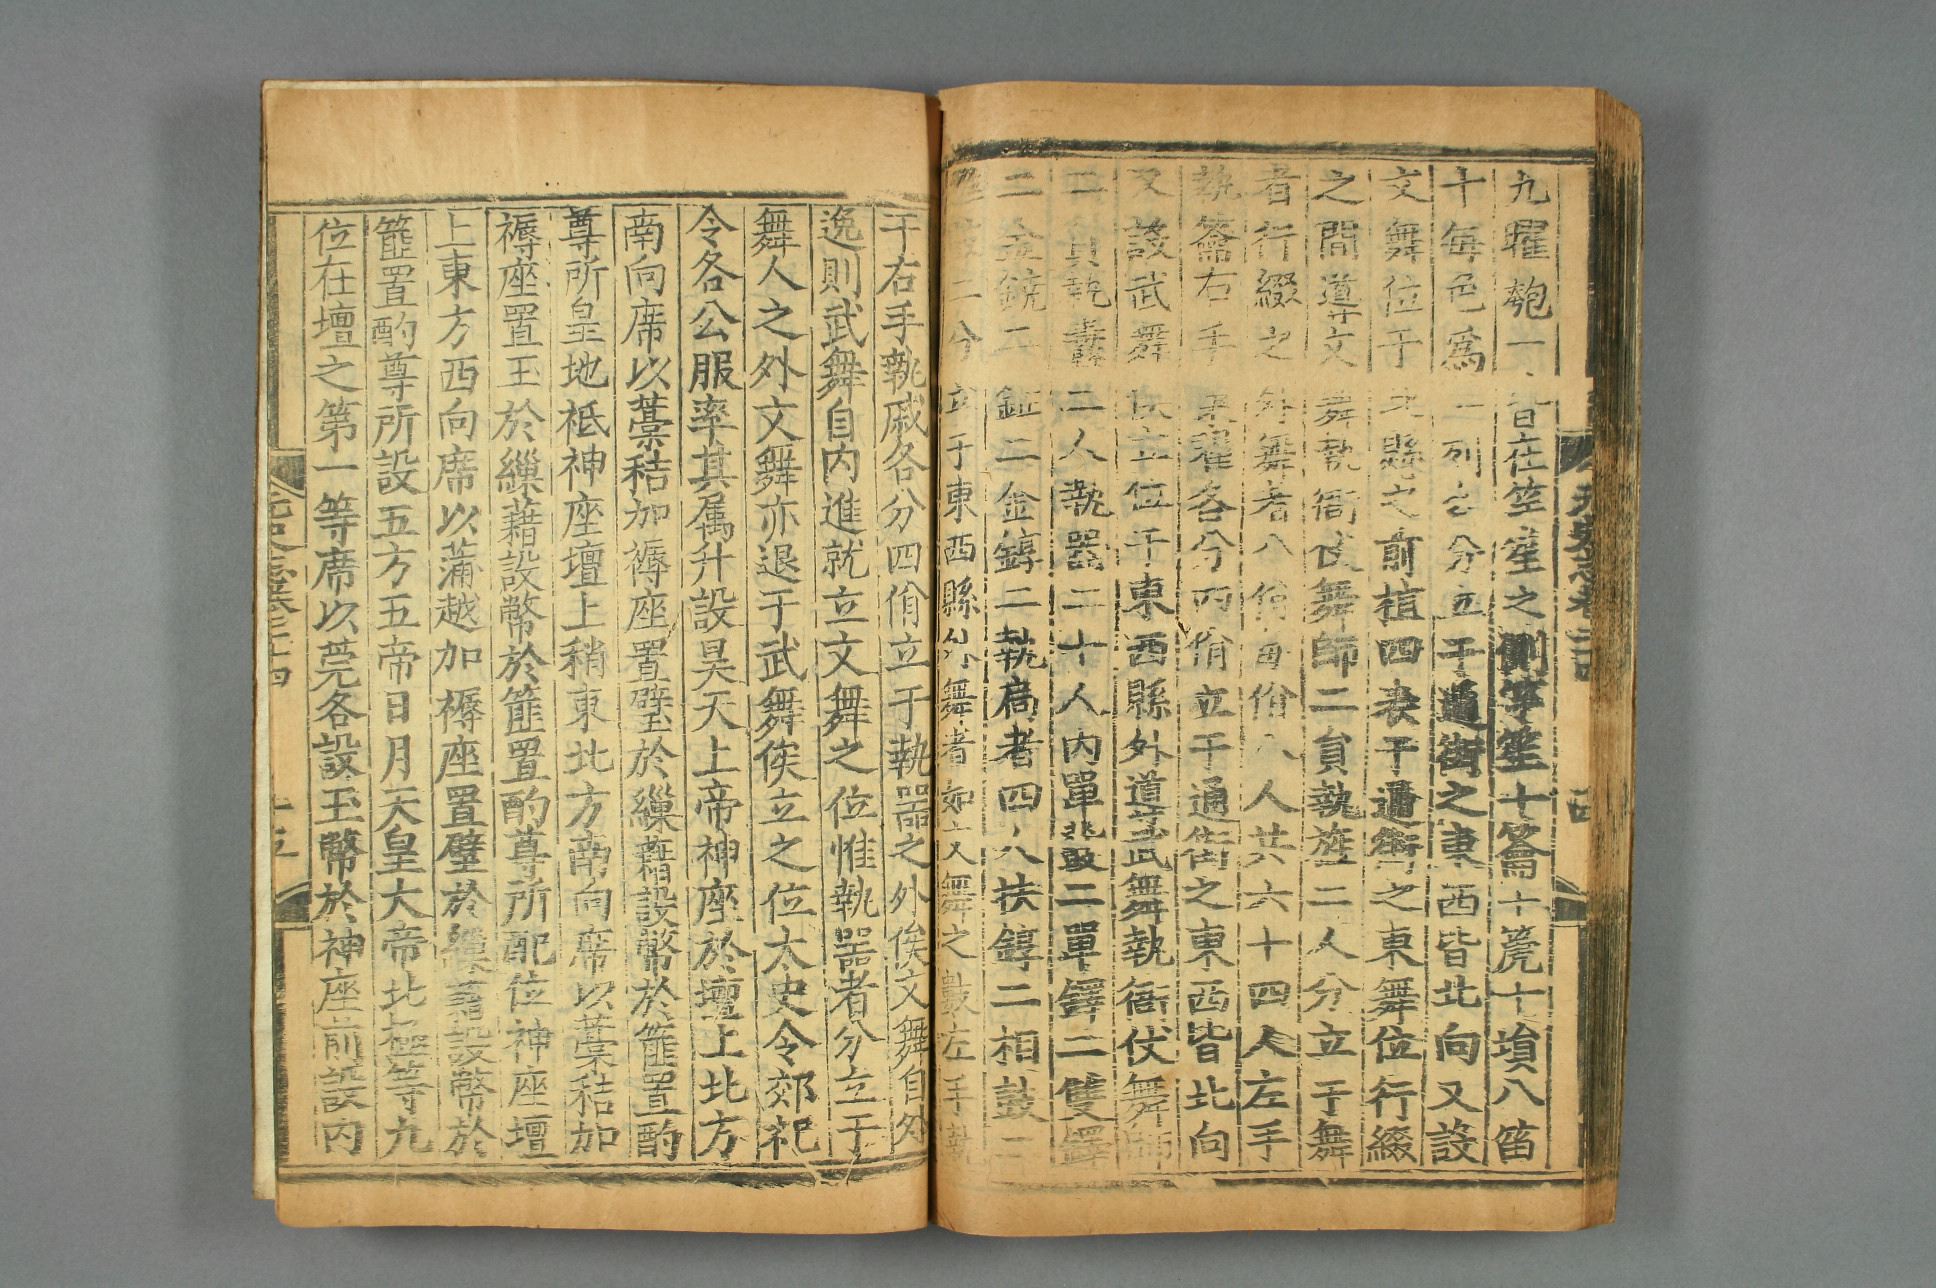 九曜匏一皆在笙室之側竽笙十籥十篪十塤八笛
十每色爲一列各分立于通街之東西皆北向又設
文舞位于北縣之前植四表于通街之東舞位行綴
之間導文舞執衙仗舞師二員執旌二人分立于舞
者行綴之外舞者八佾每佾八人共六十四人左手
執籥右手秉翟各分四佾立于通街之東西皆北向
又設武舞俟立位于東西縣外導武舞執衙仗舞師
二員執纛二人執器二十人內單鼗二單鐸二雙鐸
二金鐃二鉦二金錞二執扃者四人扶錞二相鼓二
雅鼓二分立于東西縣外舞者如文舞之數左手執
干右手執戚各分四佾立于執器之外俟文舞自外
逸則武舞自內進就立文舞之位惟執器者分立于
舞人之外文舞亦退于武舞俟立之位太史令郊祀
令各公服率其属升設昊天上帝神座於壇上北方
南向席以藁秸加褥座置璧於繅藉設幣於篚置酌
尊所皇地祇神座壇上稍東北方南向席以藁秸加
褥座置玉於繅藉設幣於篚置酌尊所配位神座壇
上東方西向席以蒲越加褥座置璧於繅藉設幣於
篚置酌尊所設五方五帝日月天皇大帝北極等九
位在壇之第一等席以莞各設玉幣於神座前設內